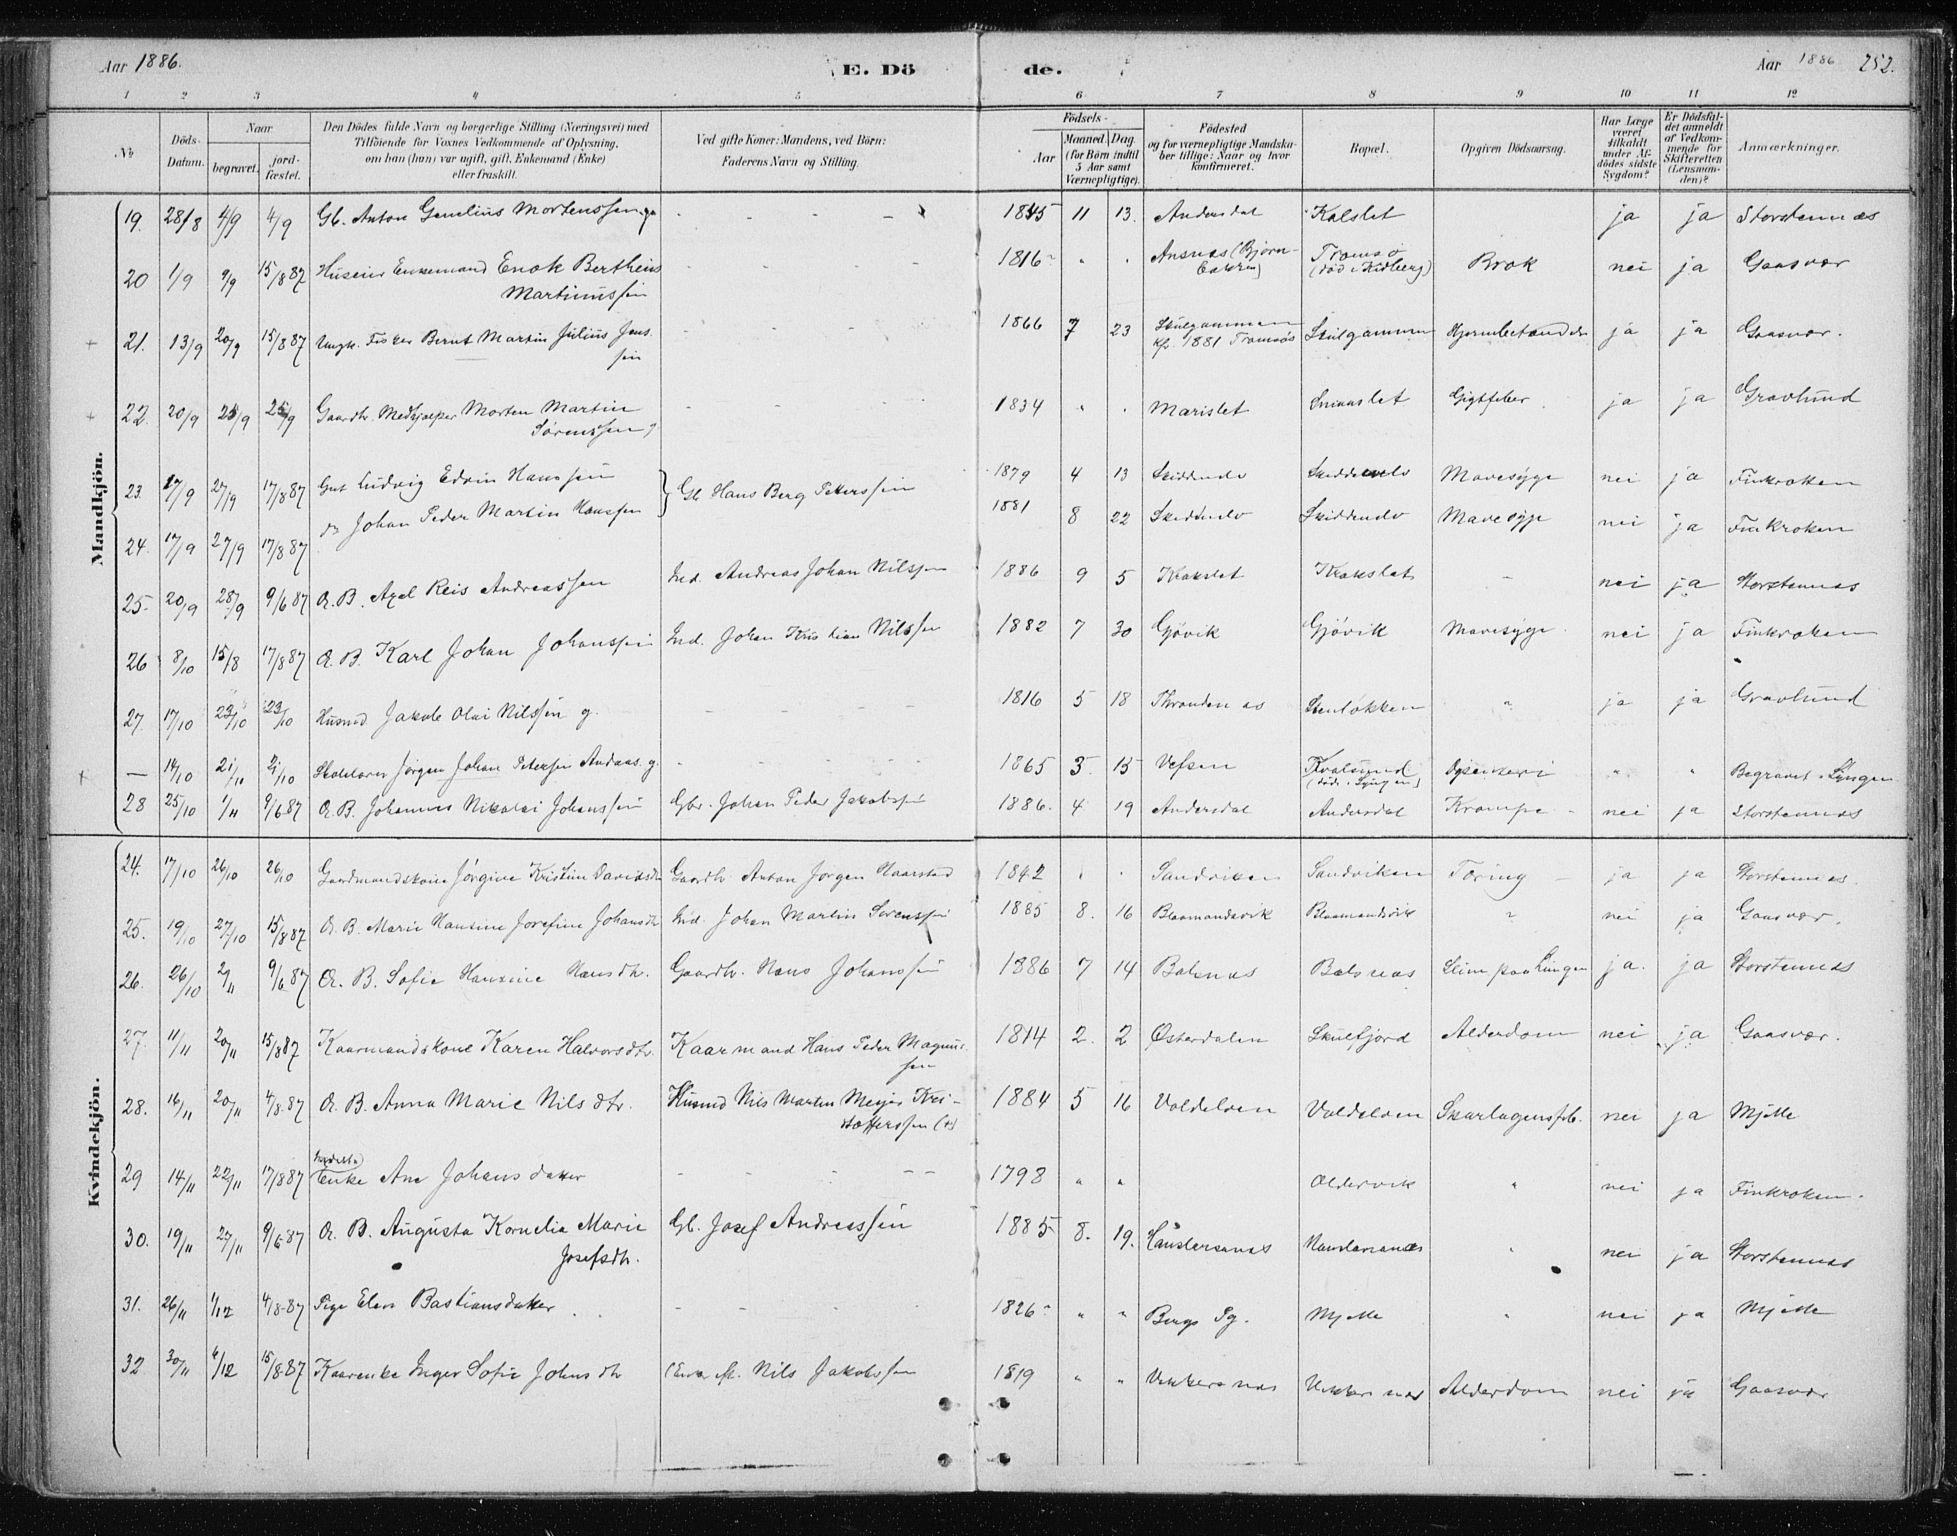 Aar 1886.
E. Dö
de.
Aar 1886 252.
1 2 3 4 5 6 7 8 9 10 11 12
No
Döds-Datum.
Naar
begravet.
jord-fæstet.
Den Dödes fulde Navn og borgerlige Stilling (Næringsvei) med
Tilföiende for Voxnes Vedkommende af Oplysning,
om han (hun) var ugift, gift, Enkemand (Enke)
eller fraskilt.
Ved gifte Koner: Mandens, ved Börn:
Faderens Navn og Stilling.
Födsels-
Aar
Maaned. Dag
(for Börn indtil
5 Aar samt
Værnepligtige).
Födested
og for værnepligtige Mandska-
ber tillige: Naar og hvor
konfirmeret.
Bopæl.
Opgiven Dödsaarsag.
Har Læge
været
tilkaldt
under Af-
dödes sidste
Sygdom?
Er Dödsfal-
det anmeldt
af Vedkom-
mende for
Skifteretten
(Lensman-
den)?
Anmærkninger.
Mandkjön.
19. 28/8 4/9 4/9 Gb. Anton Mortenssen 1845 11 13. Andersdal Kalslet ja ja Storstennæs
20 1/9 9/9 15/8 87 Husein Enkemand Enok Bertheus 1816 " " Ansnæs (Bjørn- Tromsø Brok nei ja Gaasvær
Martinussen (død i Kiberg)
21. 13/9 20/9 15/8 87 Ungk. Fisker Bernt Martin Julius Jens- 1866 7 23 Skulgammen Skulgammen Hjernebetændelse ja ja Gaasvær.
sen kf. 1881 Tromsøs
22. 20/9 25/9 25/9 Gaardbr. Medhjælper Morten Martin 1834 " " Marislet Gigtfeber ja ja Gravlund
Sørenssen g
23. 17/9 27/9 17/8 87 Gut Ludvig Edvin Hanssen } Gb. Hans Berg Peterssen 1879 4 13 Skiddenelv Skiddenelv Mavesyge nei ja Finkroken
24. 17/9 27/9 17/8 87 do Johan Peder Martin Hanssen 1881 8 22 Skiddenelv Skiddenelv Mavesyge nei ja Finkroken
25. 20/9 28/9 9/6 87 Æ. B. Axel Reis Andreassen Ind. Andreas Johan Nilssen 1886 9 5 Kakslet Kakslet - nei ja Storstennæs
26 8/10 15/8 17/8 87 Æ. B. Karl Johan Johanssen Ind. Johan Kristian Nilssen 1882 7 30 Gjøvik Gjøvik Mavesyge. nei ja Finkroken
27. 17/10 23/10 23/10 Husmd Jakob Olai Nilssen g. 1816 5 18 Throndenæs " ja ja Gravlund
— 14/10 21/10 21/10 Skolelærer Jørgen Johan Petersen Andaas. g. 1865 3. 15 Vefsen Kvalsund Dysenteri " " Begravet i Lyngen
(død i Lyngen)
28 25/10 1/11 9/6 87 Æ. B. Johannes Nikolai Johanssen Gbr. Johan Peder Jakobssen 1886. 4 19 Andersdal Andersdal Krampe - nei ja Storstennæs
Kvindekjön.
24. 17/10 26/10 26/10 Gaardmandskone Jørgine Kristine Davidsdtr Gaardbr. Anton Jørgen Haarstad 1842 " " Sandviken Sandviken Tæring - ja ja Storstennæs.
25. 19/10 27/10 15/8 87 Æ. B. Marie Hansine Josefine Johansdtr Ind. Johan Martin Sørenssen 1885 8. 16 Blaamandsvik Blaamandsvik " nei ja Gaasvær.
26. 26/10 2/11 9/6 87 Æ. B. Sofie Hansine Hansdtr. Gaardbr. Hans Johanssen 1886 7 14 Balsnæs Balsnæs Slim paa Lungen ja. ja Storstennæs
27. 11/11 20/11 15/8 87 Kaarmandskone Karen Halvorsdtr. Kaarmand Hans Peder Magnus- 1814 2. 2 Østerdalen Skulsfjord Alderdom nei ja Gaasvær.
sen
28. 16/11 20/11 4/8 87 Æ. B. Anna Marie Nilsdtr. Husmd Nils Martin Meyer Kri- 1884 5 16 Valdelven Valdelven Skarlagensfeb. nei ja Mjelle
stofferssen (+)
29 14/11 22/11 17/8 87 Enke Ane Johansdatter 1798 " " Oldervik " nei ja Finkroken.
30. 19/11 27/11 9/6 87 Æ. B. Augusta Kornelia Marie Gb. Josef Andreassen 1885 8. 19. " nei ja Storstennæs
Josefsdtr.
31. 26/11 1/12 4/8 87 Pige Elen Bastiansdatter 1826 " " Bergs Sg. Mjelle " nei ja Mjelle
32 30/11 6/12 15/8 87 Kaarenke Inger Sofie Johnsdtr (Enke eft. Nils Jakobssen 1819 " " Vikkersnæs Vikkersnæs Alderdom nei ja Gaasvær